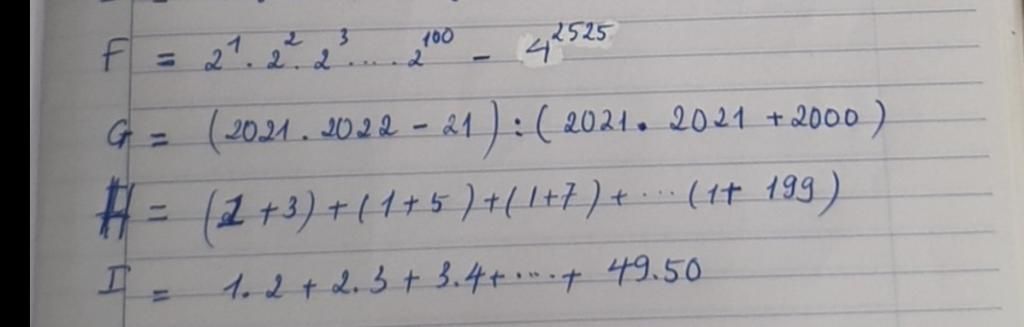 F = 2¹. 2². 2³ .... 2¹⁰⁰ - 4²⁵²⁵
G = (2021. 2022 - 21) : ( 2021. 2021 + 2000 )
H = (1 + 3) + ( 1 + 5 ) + ( 1 + 7 ) + ... (1 + 199)
I = 1. 2 + 2. 3 + 3. 4 + .... + 49. 50